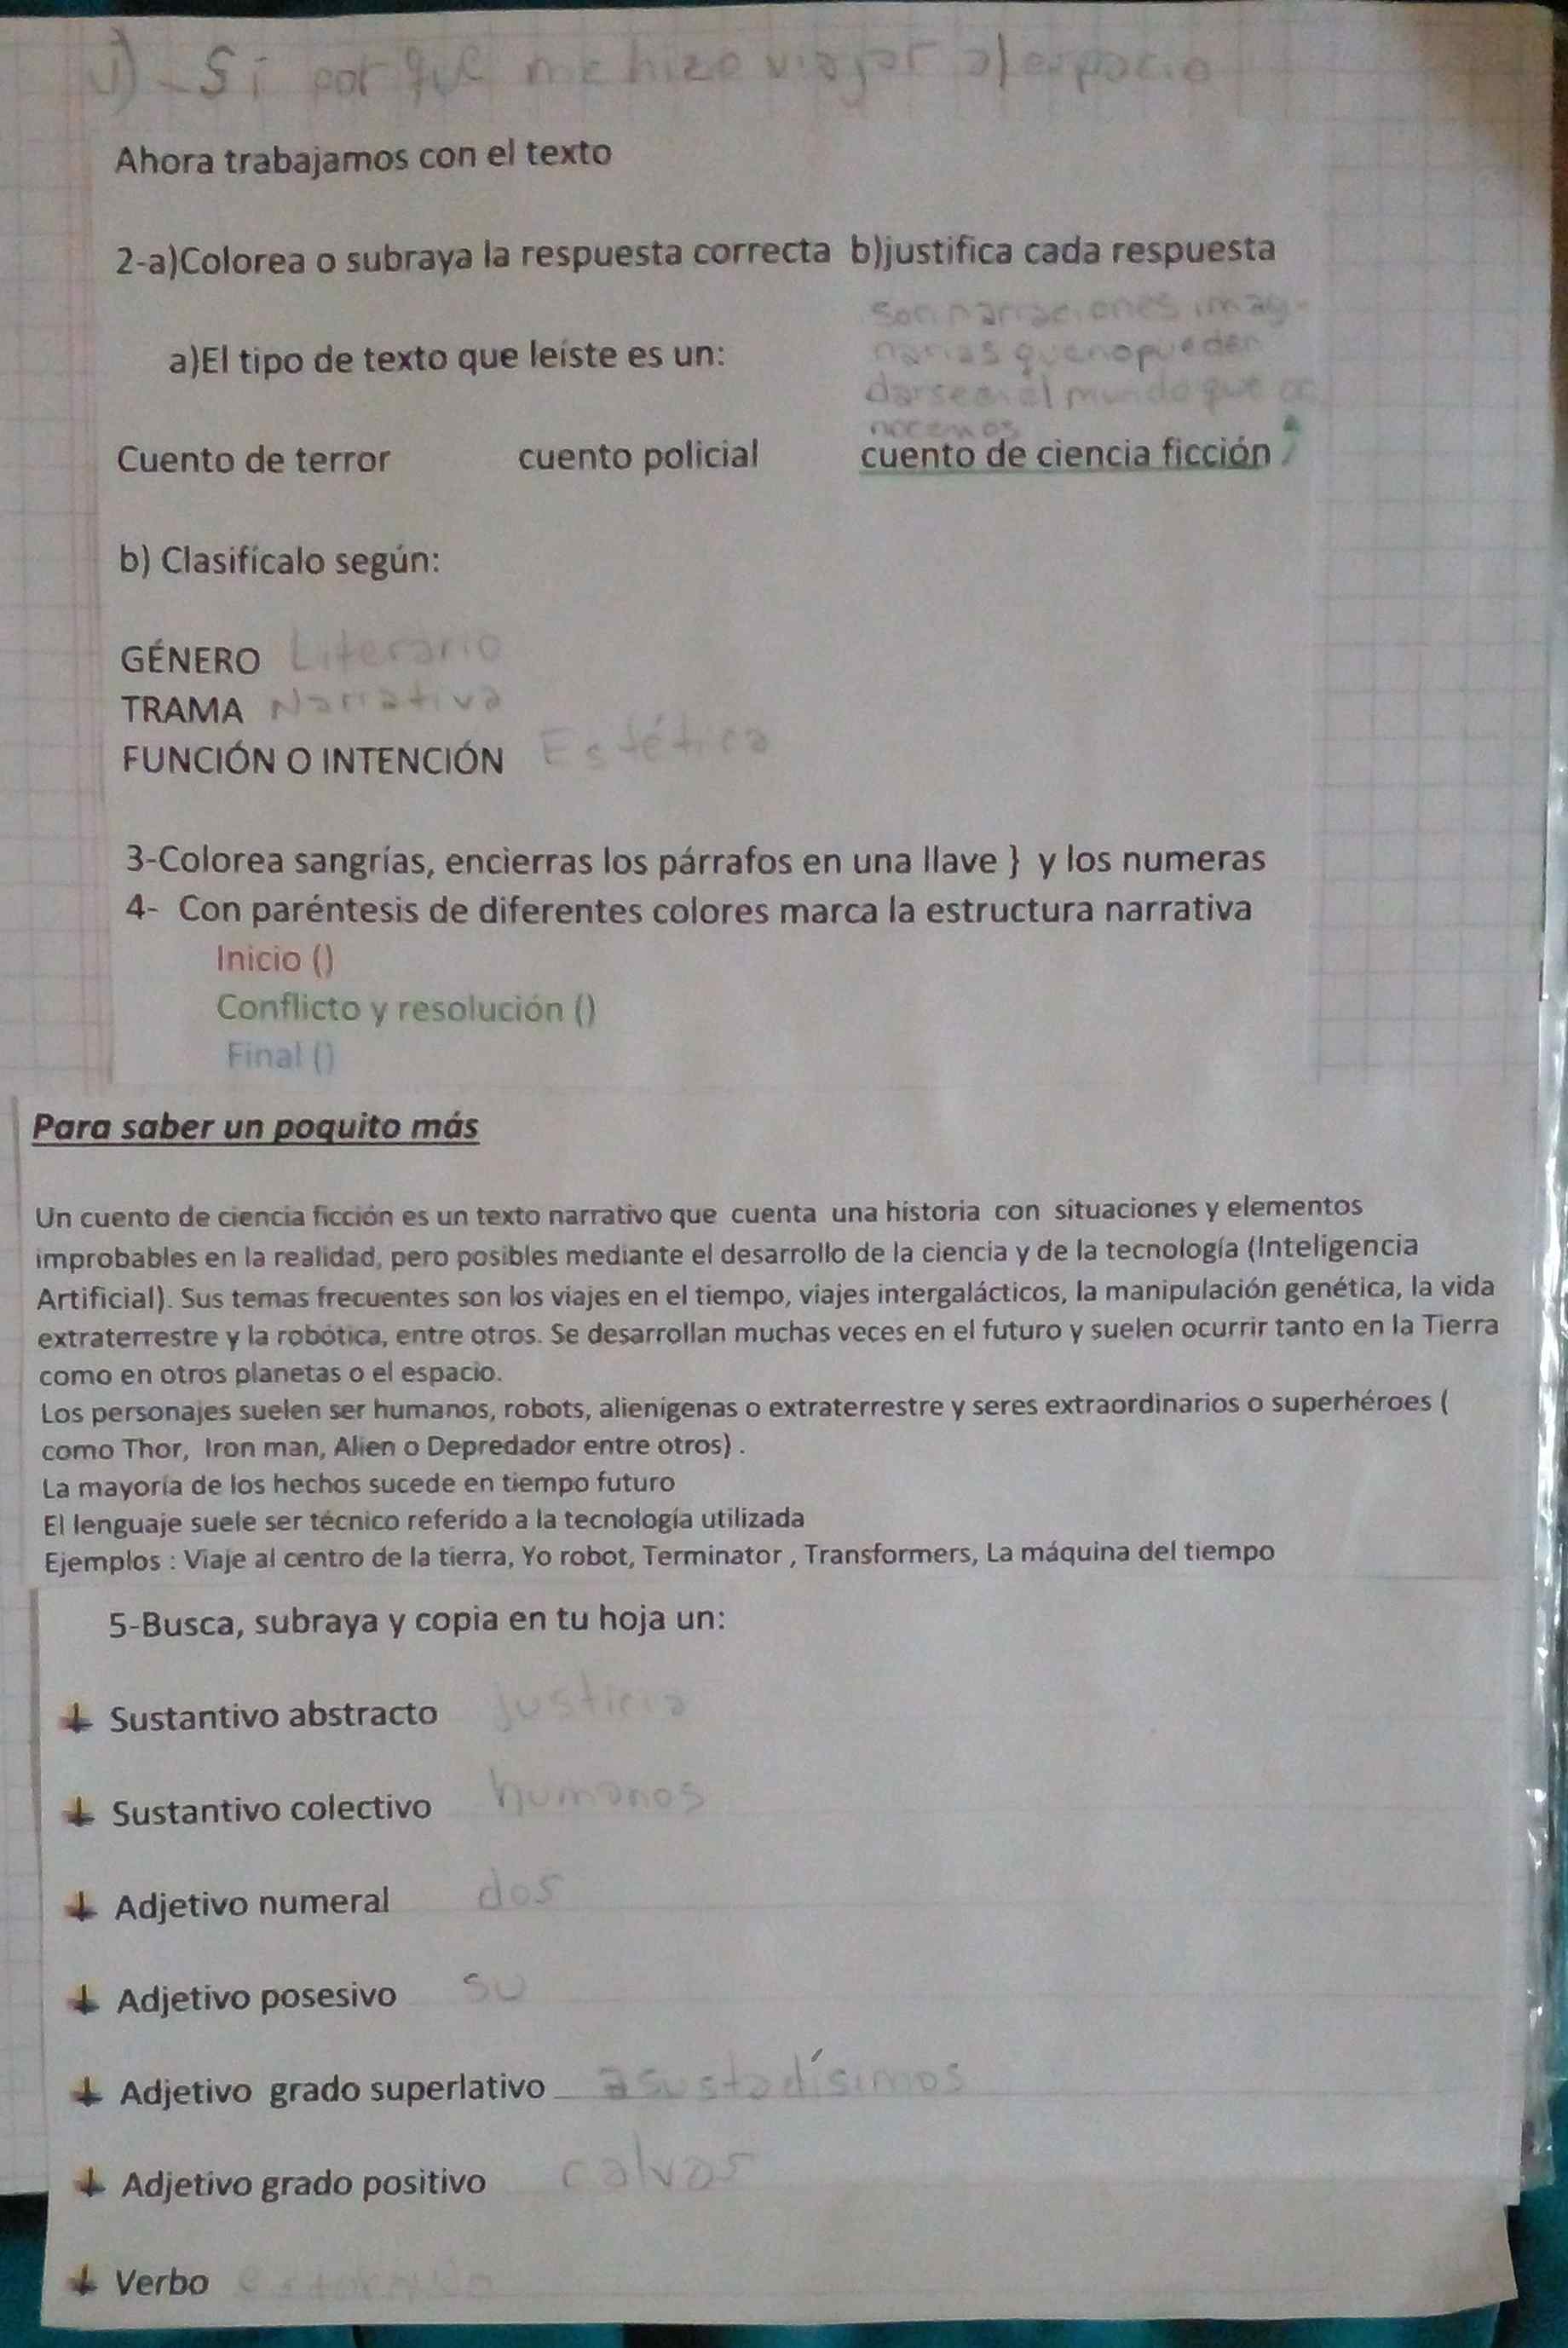 1)-Si por que me hizo viajar al espacio
Ahora trabajamos con el texto
2-a)Colorea o subraya la respuesta correcta b)justifica cada respuesta
son narraciones imag-
narias que no pueden
darse en el mundo que co
nocemos
a)El tipo de texto que leíste es un:
Cuento de terror cuento policial cuento de ciencia ficción
b) Clasifícalo según:
GÉNERO Literario
TRAMA Narrativa
FUNCIÓN O INTENCIÓN Estética
3-Colorea sangrías, encierras los párrafos en una llave } y los numeras
4- Con paréntesis de diferentes colores marca la estructura narrativa
Inicio ()
Conflicto y resolución ()
Final ()
Para saber un poquito más
Un cuento de ciencia ficción es un texto narrativo que cuenta una historia con situaciones y elementos
improbables en la realidad, pero posibles mediante el desarrollo de la ciencia y de la tecnología (Inteligencia
Artificial). Sus temas frecuentes son los viajes en el tiempo, viajes intergalácticos, la manipulación genética, la vida
extraterrestre y la robótica, entre otros. Se desarrollan muchas veces en el futuro y suelen ocurrir tanto en la Tierra
como en otros planetas o el espacio.
Los personajes suelen ser humanos, robots, alienígenas o extraterrestre y seres extraordinarios o superhéroes (
como Thor, Iron man, Alien o Depredador entre otros) .
La mayoría de los hechos sucede en tiempo futuro
El lenguaje suele ser técnico referido a la tecnología utilizada
Ejemplos : Viaje al centro de la tierra, Yo robot, Terminator , Transformers, La máquina del tiempo
5-Busca, subraya y copia en tu hoja un:
Sustantivo abstracto justicia
Sustantivo colectivo humanos
Adjetivo numeral dos
Adjetivo posesivo su
Adjetivo grado superlativo asustadísimos
Adjetivo grado positivo calvas
Verbo